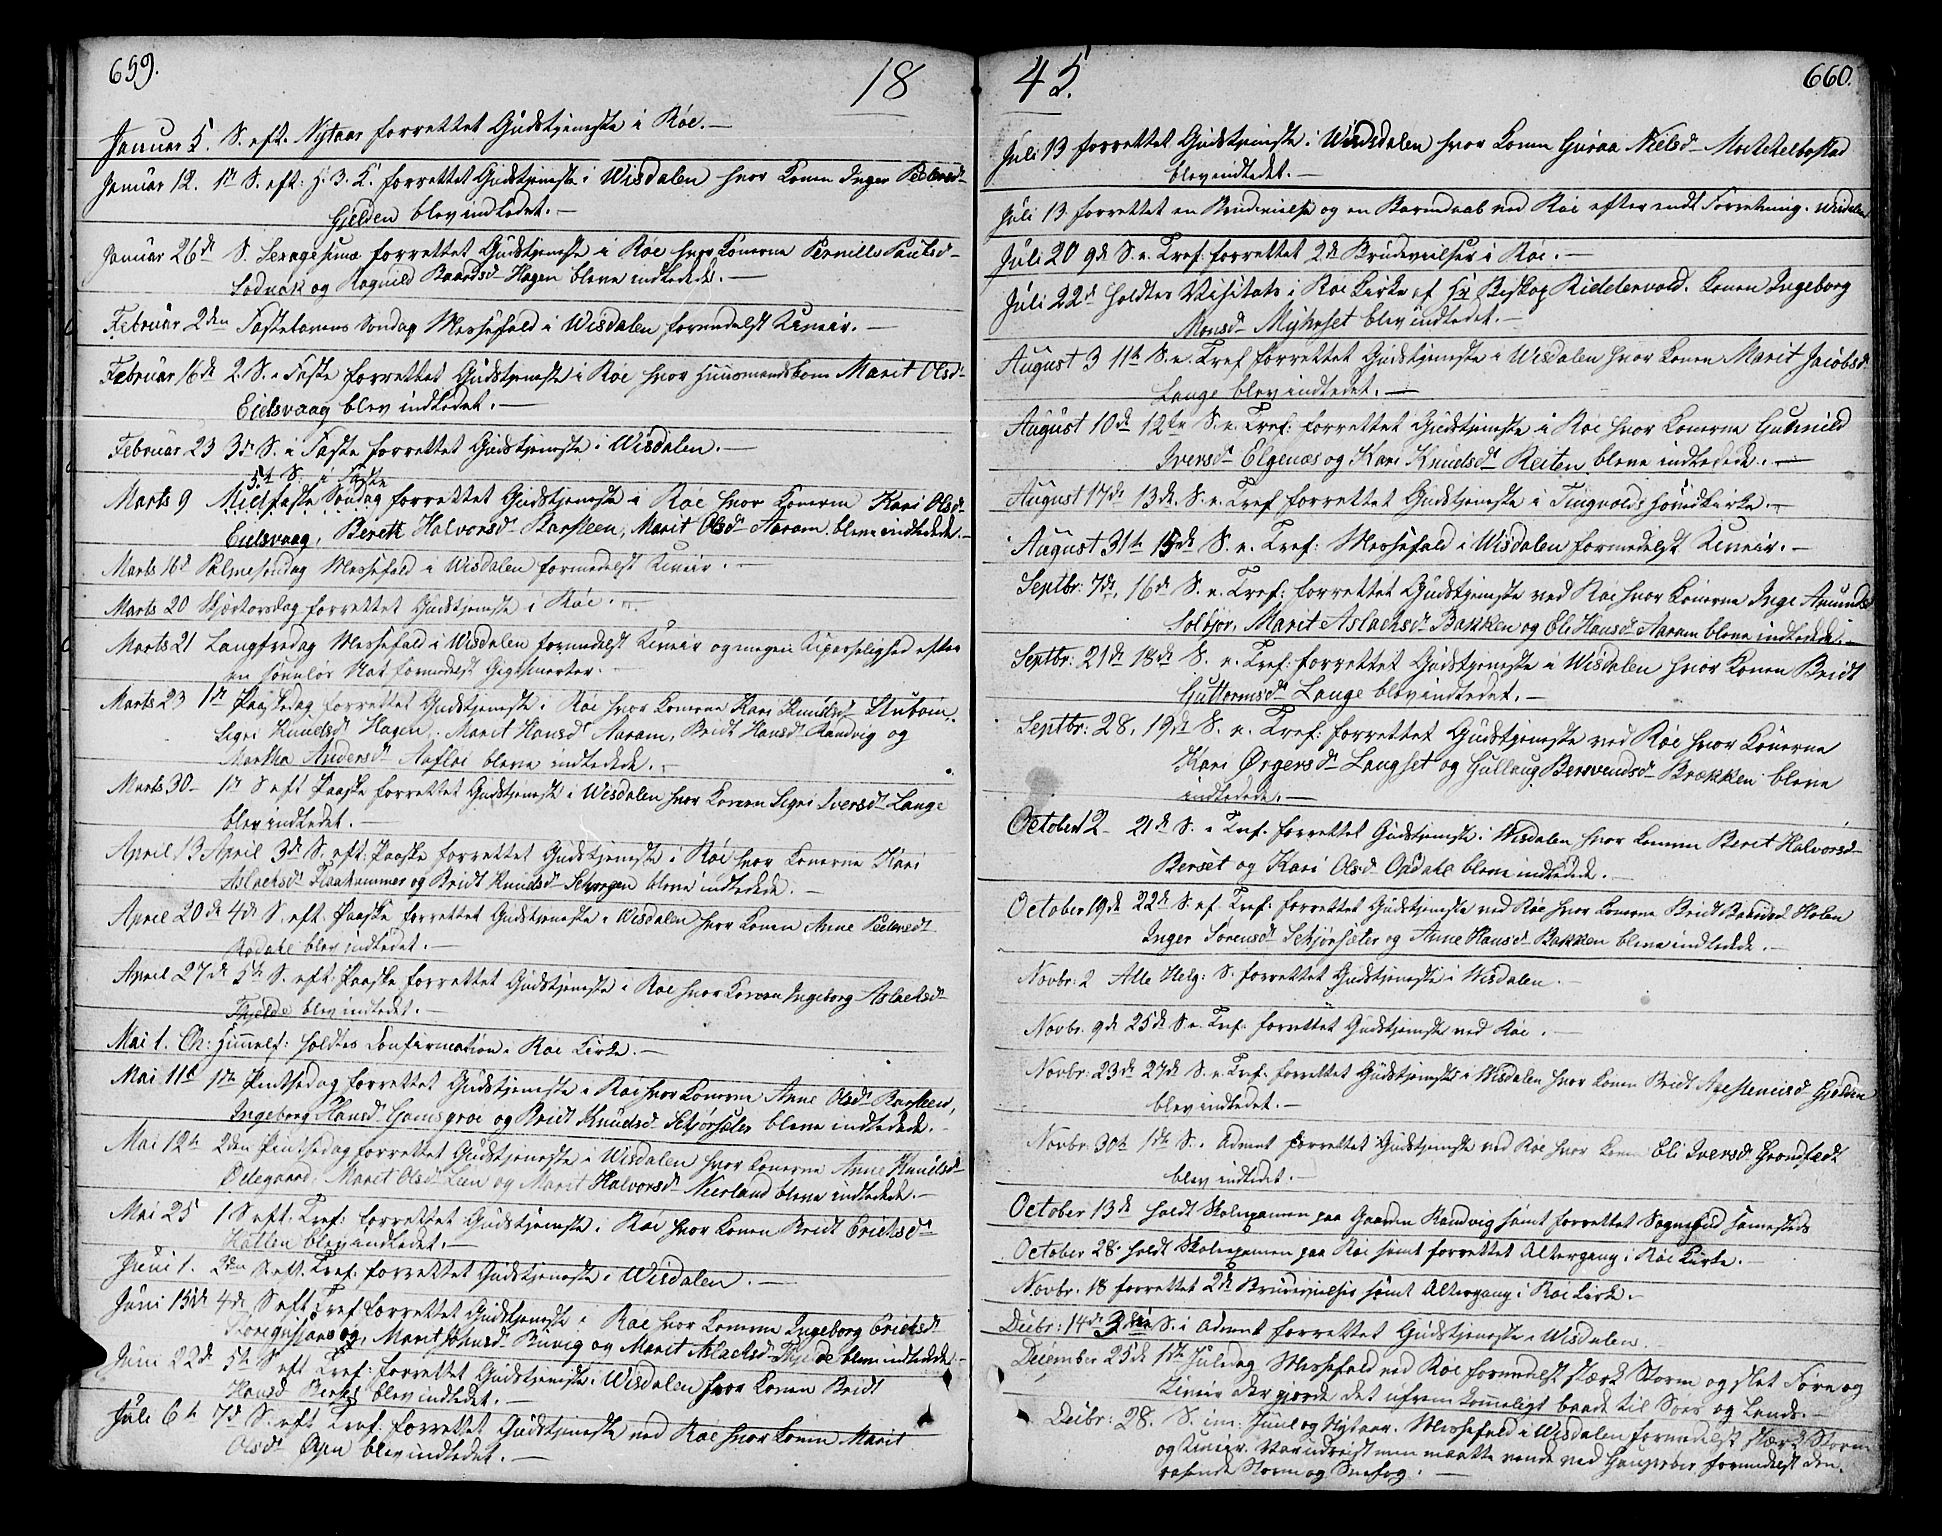 659.
18
Januar 5. S. eft. Nytaar forrettet Gudstjeneste i Røe. —
Januar 12. 1ste S. eft. H. 3. K. forrettet Gudstjeneste i Wisdalen hvor Konen Inger Pedersdr
Gjelden blev indledet. —
Januar 26de S. Sexagesima forrettet Gudstjeneste i Røe hvor Konerne Pernille Paulsdr
og Ragnild Baardsdr Hagen bleve indledede. —
Februar 2den Fastelavens Søndag Messefald i Wisdalen formedelst Uveir. —
Februar 16de 2. S. i Faste forrettet Gudstjeneste i Røe hvor Huusmandskone Marit Olsdr
Eidsvaag blev indledet. —
Februar 23 3die S. i Faste forrettet Gudstjeneste i Wisdalen. —
5te S. i Faste
Marts 9 Midfaste Søndag forrettet Gudstjeneste i Røe hvor Konerne Kari Olsdr
Eidsvaag, Bereth Halvorsdr Barsteen, Marit Olsdr Aaram bleve indledede. —
Marts 16d Palmesøndag Messefald i Wisdalen formedelst Uveir. —
Marts 20 Skjærtorsdag forrettet Gudstjeneste i Røe. —
Marts 21 Langfredag Messefald i Wisdalen formedelst Uveir og megen Upasselighed efter
en søvnløs Nat formedelst Gigtsmerter. —
Marts 23 1ste Paaskedag forrettet Gudstjeneste i Røe hvor Konerne Kari Knudsdr
Sigri Knudsdr Hagen, Marit Hansdr Aaram, Bridt Hansdr Randvig og
Martha Andersdr Aafloi bleve indledede. —
Marts 30 — 1ste S. eft Paaske forrettet Gudstjeneste i Wisdalen hvor Konen Sigri Iversdr Lange
blev indledet. —
April 13 April 3de S. eft. Paaske forrettet Gudstjeneste i Røe hvor Konerne Kari
Aslachsdr Flaahammer og Bridt Knudsdr bleve indledede. —
April 20de 4de S. eft. Paaske forrettet Gudstjeneste i Wisdalen hvor Konen Anne Pedersdr
blev indledet. —
April 27de 5te S. eft Paaske forrettet Gudstjeneste i Røe hvor Konen Ingeborg Aslachsdr
Fjelde blev indledet. —
Mai 1. Ch: Himelf: holdtes Confirmation i Røe Kirke. —
Mai 11te 1ste Pintsedag forrettet Gudstjeneste i Røe hvor Konerne Anne Olsdr Barsteen,
Ingeborg Hansdr og Bridt Knudsdr Schjørsæter bleve indledede. —
Mai 12te 2den Pintsedag forrettet Gudstjeneste i Wisdalen hvor Konerne Anne Knudsdr
Ødegaard, Marit Olsdr Lien og Marit Halvorsdr Neerland bleve indledede. —
Mai 25 1 S eft. Tref: forrettet Gudstjeneste i Røe hvor Konen Bridt Erichsdr
Hatlen blev indledet. —
Juni 1. 2den S. eft. Tref: forrettet Gudstjeneste i Wisdalen. —
Juni 15de 4de S eft Tref forrettet Gudstjeneste i Røe hvor Konerne Ingeborg Erichsdr
Marit Johnsdr og Marit Aslachsdr Fjelde bleve indledede. —
Juni 22de 5te S. eft Tref: forrettet Gudstjeneste i Wisdalen hvor Konen Bridt
Hansdr blev indledet. —
Juli 6te 7de S. eft Tref: forrettet Gudstjeneste ved Røe hvor Konen Marit
Olsdr Øyen blev indledet. —
45.
660.
Juli 13 forrettet Gudstjeneste i Wisdalen hvor Konen Guraa Nielsdr Mechelbostad
blev indledet. —
Juli 13 forrettet en Brudevielse og en Barnedaab ved Røe efter endt Forretning i Wisdalen
Juli 20 9de S. e. Tref: forrettet 2de Brudevielser i Røe. —
Juli 22de holdtes Visitats i Røe Kirke af Hr Biskop Riddervold. Konen Ingeborg
Monsdr Myhrset blev indledet. —
August 3 11te S. e. Tref forrettet Gudstjeneste i Wisdalen hvor Konen Marit Jacobsdr
Lange blev indledet. —
August 10de 12te S. e. Tref: forrettet Gudstjeneste i Røe hvor Konerne Gudnild
Iversdr Elgenæs og Kari Knudsdr Reiten bleve indledede. —
August 17de 13de S. e. Tref forrettet Gudstjeneste i Tingvolds Hovedkirke. —
August 31te 15de S. e. Tref: Messefald i Wisdalen formedelst Uveir. —
Septbr: 7de, 16de S. e. Tref: forrettet Gudstjeneste ved Røe hvor Konerne Inge Amundsdr
Solbjør, Marit Aslachsdr Bakken og Eli Hansdr Aaram bleve indledede. —
Septbr: 21de 18de S. e. Tref: forrettet Gudstjeneste i Wisdalen hvor Konen Bridt
Guttormsdr Lange blev indledet. —
Septbr: 28, 19de S. e. Tref: forrettet Gudstjeneste ved Røe hvor Konerne
Kari Ørgersdr Langset og Gullaug Bersvendsdr Brækken bleve
indledede. —
October 12 — 21de S. e Tref. forrettet Gudstjeneste i Wisdalen hvor Konerne Berit Halvorsdr
Berset og Kari Olsdr Opdale bleve indledede. —
October 19de 22de S. ef. Tref: forrettet Gudstjeneste ved Røe hvor Konerne Bridt Baardsdr Holen
Inger Sørensdr Schjørsæter og Anne Hansdr Bakken bleve indledede. —
Novbr: 2 Alle Helg: S. forrettet Gudstjeneste i Wisdalen. —
Novbr. 9de 25de S e. Tref: forrettet Gudstjeneste ved Røe. —
Novbr: 23de 27de S. e. Tref: forrettet Gudstjeneste i Wisdalen hvor Konen Bridt Gjelden
blev indledet. —
Novbr: 30te 1ste S. i Advent forrettet Gudstjeneste ved Røe hvor Konen Eli Iversdr
blev indledet. —
October 13de holdt Skoleexamen paa Gaarden Randvig samt forrettet Sognebud sammesteds
October 28. holdt Skoleexamen paa Røe samt forrettet Altergang i Røe Kirke. —
Novbr. 18 forrettet 2de Brudevielser samt Altergang i Røe Kirke. —
Decbr: 14de 3die S. i Advent forrettet Gudstjeneste i Wisdalen.
December 25de 1ste Juledag Messefald ved Røe formedelst stærk Storm og slet Føre og
Uveir der gjorde det ufremkommeligt baade til Søes og Lands. —
Decbr: 28. S. im: Juul og Nytaar. Messefald i Wisdalen formedelst stærk Storm
og Uveir. Var udreist men maatte vende ved formedelst den
rasende Storm og Snefog. —